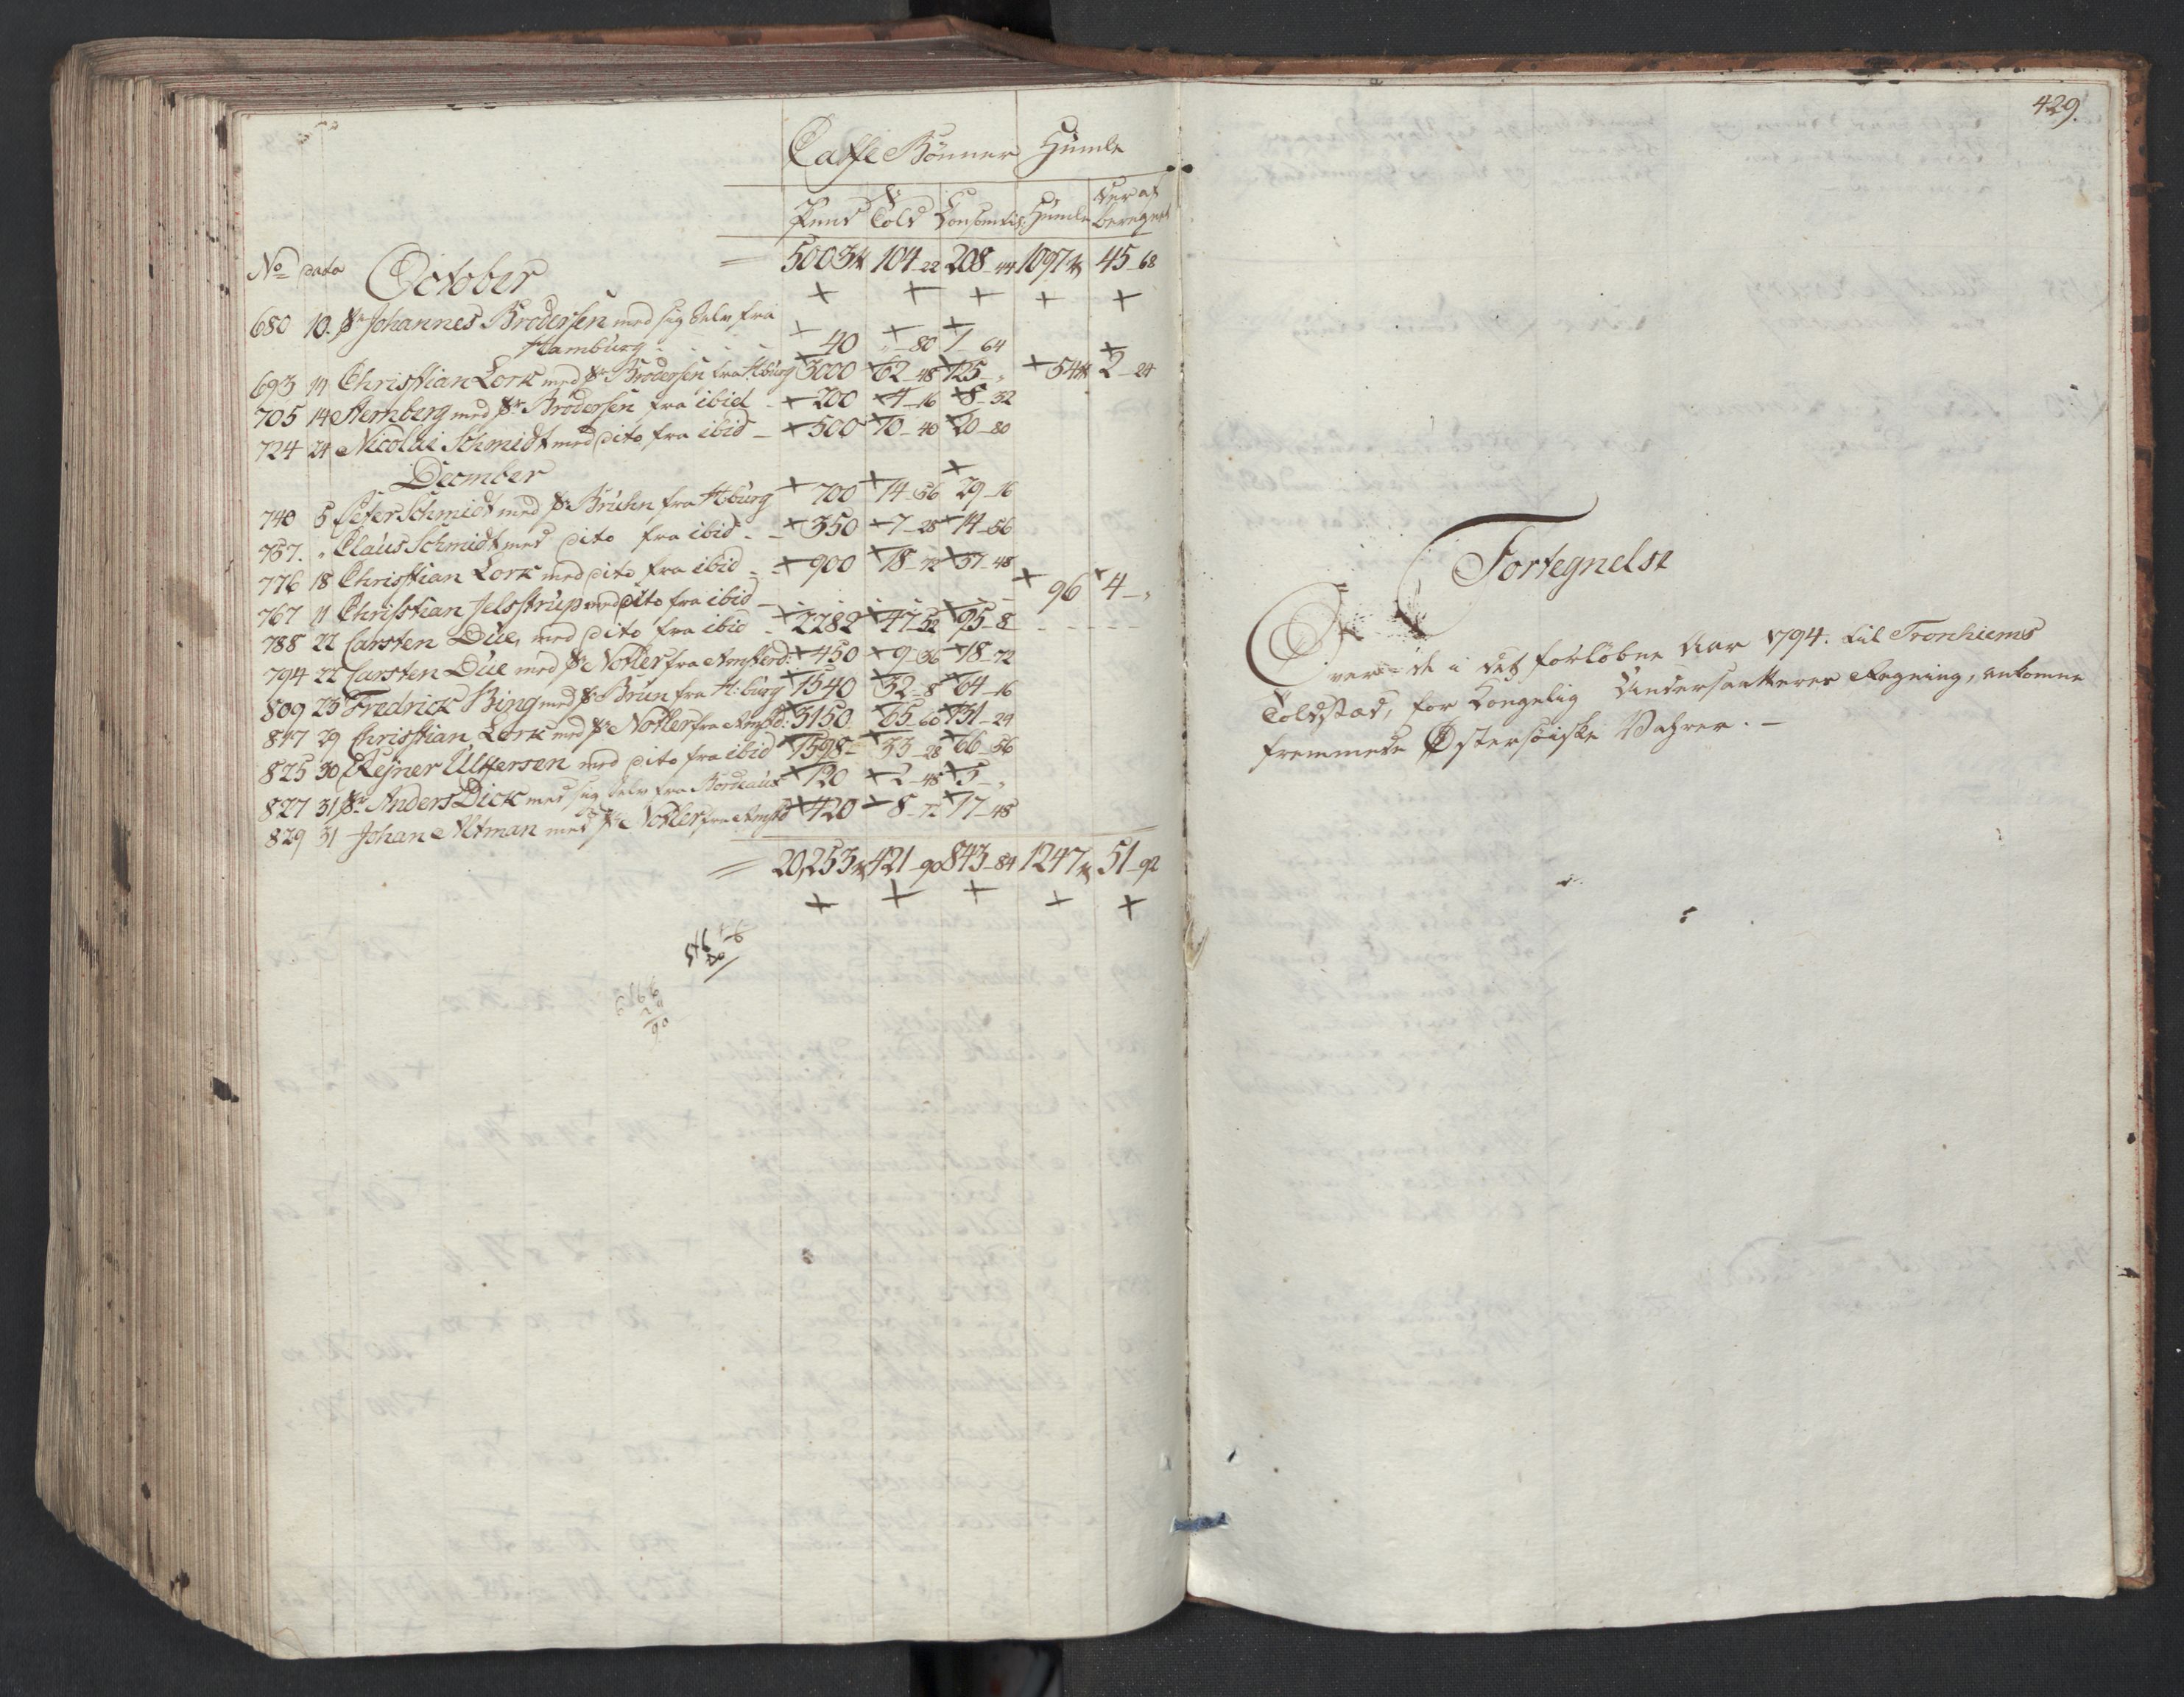 429.
Caffe Bønner Humle
Pund Told Consumtis: Humle Deraf beregnet
5003 ℔ 104-22 208-44 1097 ℔ 45-68
No dato October
680 10. Sr Johannes Brodersen med sig Selv fra
Hamburg 40 "-80 1-64
693 11 Christian Lork med Sr Brodersen fra H:burg 3000 62-48 125-" 54 ℔ 2-24
705 14 Sternberg med Sr Brodersen fra ibid 200 4-16 8-32
724 24 Nicolai Schmidt med dito fra ibid 500 10-40 20-80
December
740 5 Peter Schmidt med Sr Bruhn fra Hburg 700 14-56 29-16
757. " Claus Schmidt med dito fra ibid 350 7-28 14-56
776 18 Christian Lork med dito fra ibid 900 18-72 37-48
767 11 Christian Jelstrup med dito fra ibid 96 4-"
788 22 Carsten Due, med dito fra ibid 2282 47-52 95-8
794 22 Carsten Due med Sr Notler fra Amsterd: 450 9-36 18-72
809 23 Fredrick Bing med Sr Brun fra H:burg 1540 32-8 64-16
817 29 Christian Lork med Sr Notler fra Amstd: 3150 65-60 131-24
825 30 Rejner Ulffersen med dito fra ibid 1598 33-28 66-56
827 31 Sr Anders Dick med sig Selv fra Bordeaux 120 2-48 5-"
829 31 Johan Altman med Sr Notler fra Amstd 420 8-72 17-48
20,253 ℔ 421-90 843-84 1247 ℔ 51-92
Fortegnelse
Over de i det forløbne Aar 1794. til Tronhiems
Toldstæd, for Kongelig Undersaatteres Regning, ankomne
fremmede Østersøiske Vahrer.-